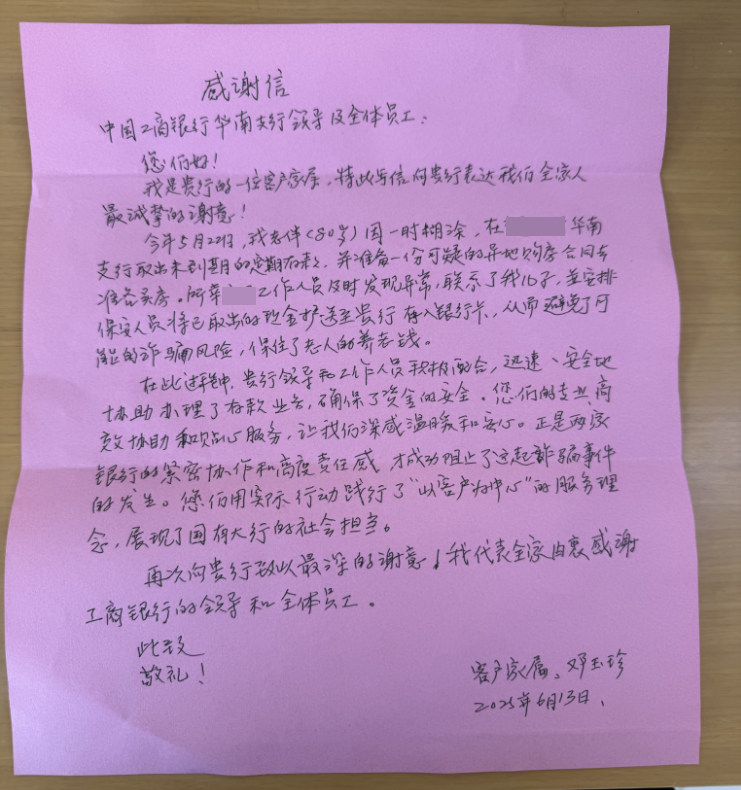 感谢信
中国工商银行华南支行领导及全体员工：
您们好！
我是贵行的一位客户家属，特此写信向贵行表达我们全家人
最诚挚的谢意！
今年5月22日，我老伴（80岁）因一时糊涂，在 华南
支行取出未到期的定期存款，并准备一份可疑的异地购房合同去
准备买房。所幸 工作人员及时发现异常，联系了我儿子，并安排
保安人员将已取出的现金护送至贵行存入银行卡，从而避免了可
能的诈骗风险，保住了老人的养老钱。
在此过程中，贵行领导和工作人员积极配合，迅速、安全地
协助办理了存款业务，确保了资金的安全。您们的专业高
效协助和贴心服务，让我们深感温暖和安心。正是两家
银行的紧密协作和高度责任感，才成功阻止了这起诈骗事件
的发生。您们用实际行动践行了“以客户为中心”的服务理
念，展现了国有大行的社会担当。
再次向贵行致以最深的谢意！我代表全家由衷感谢
工商银行的领导和全体员工。
此致
敬礼！
客户家属：邓玉珍
2025年6月13日.